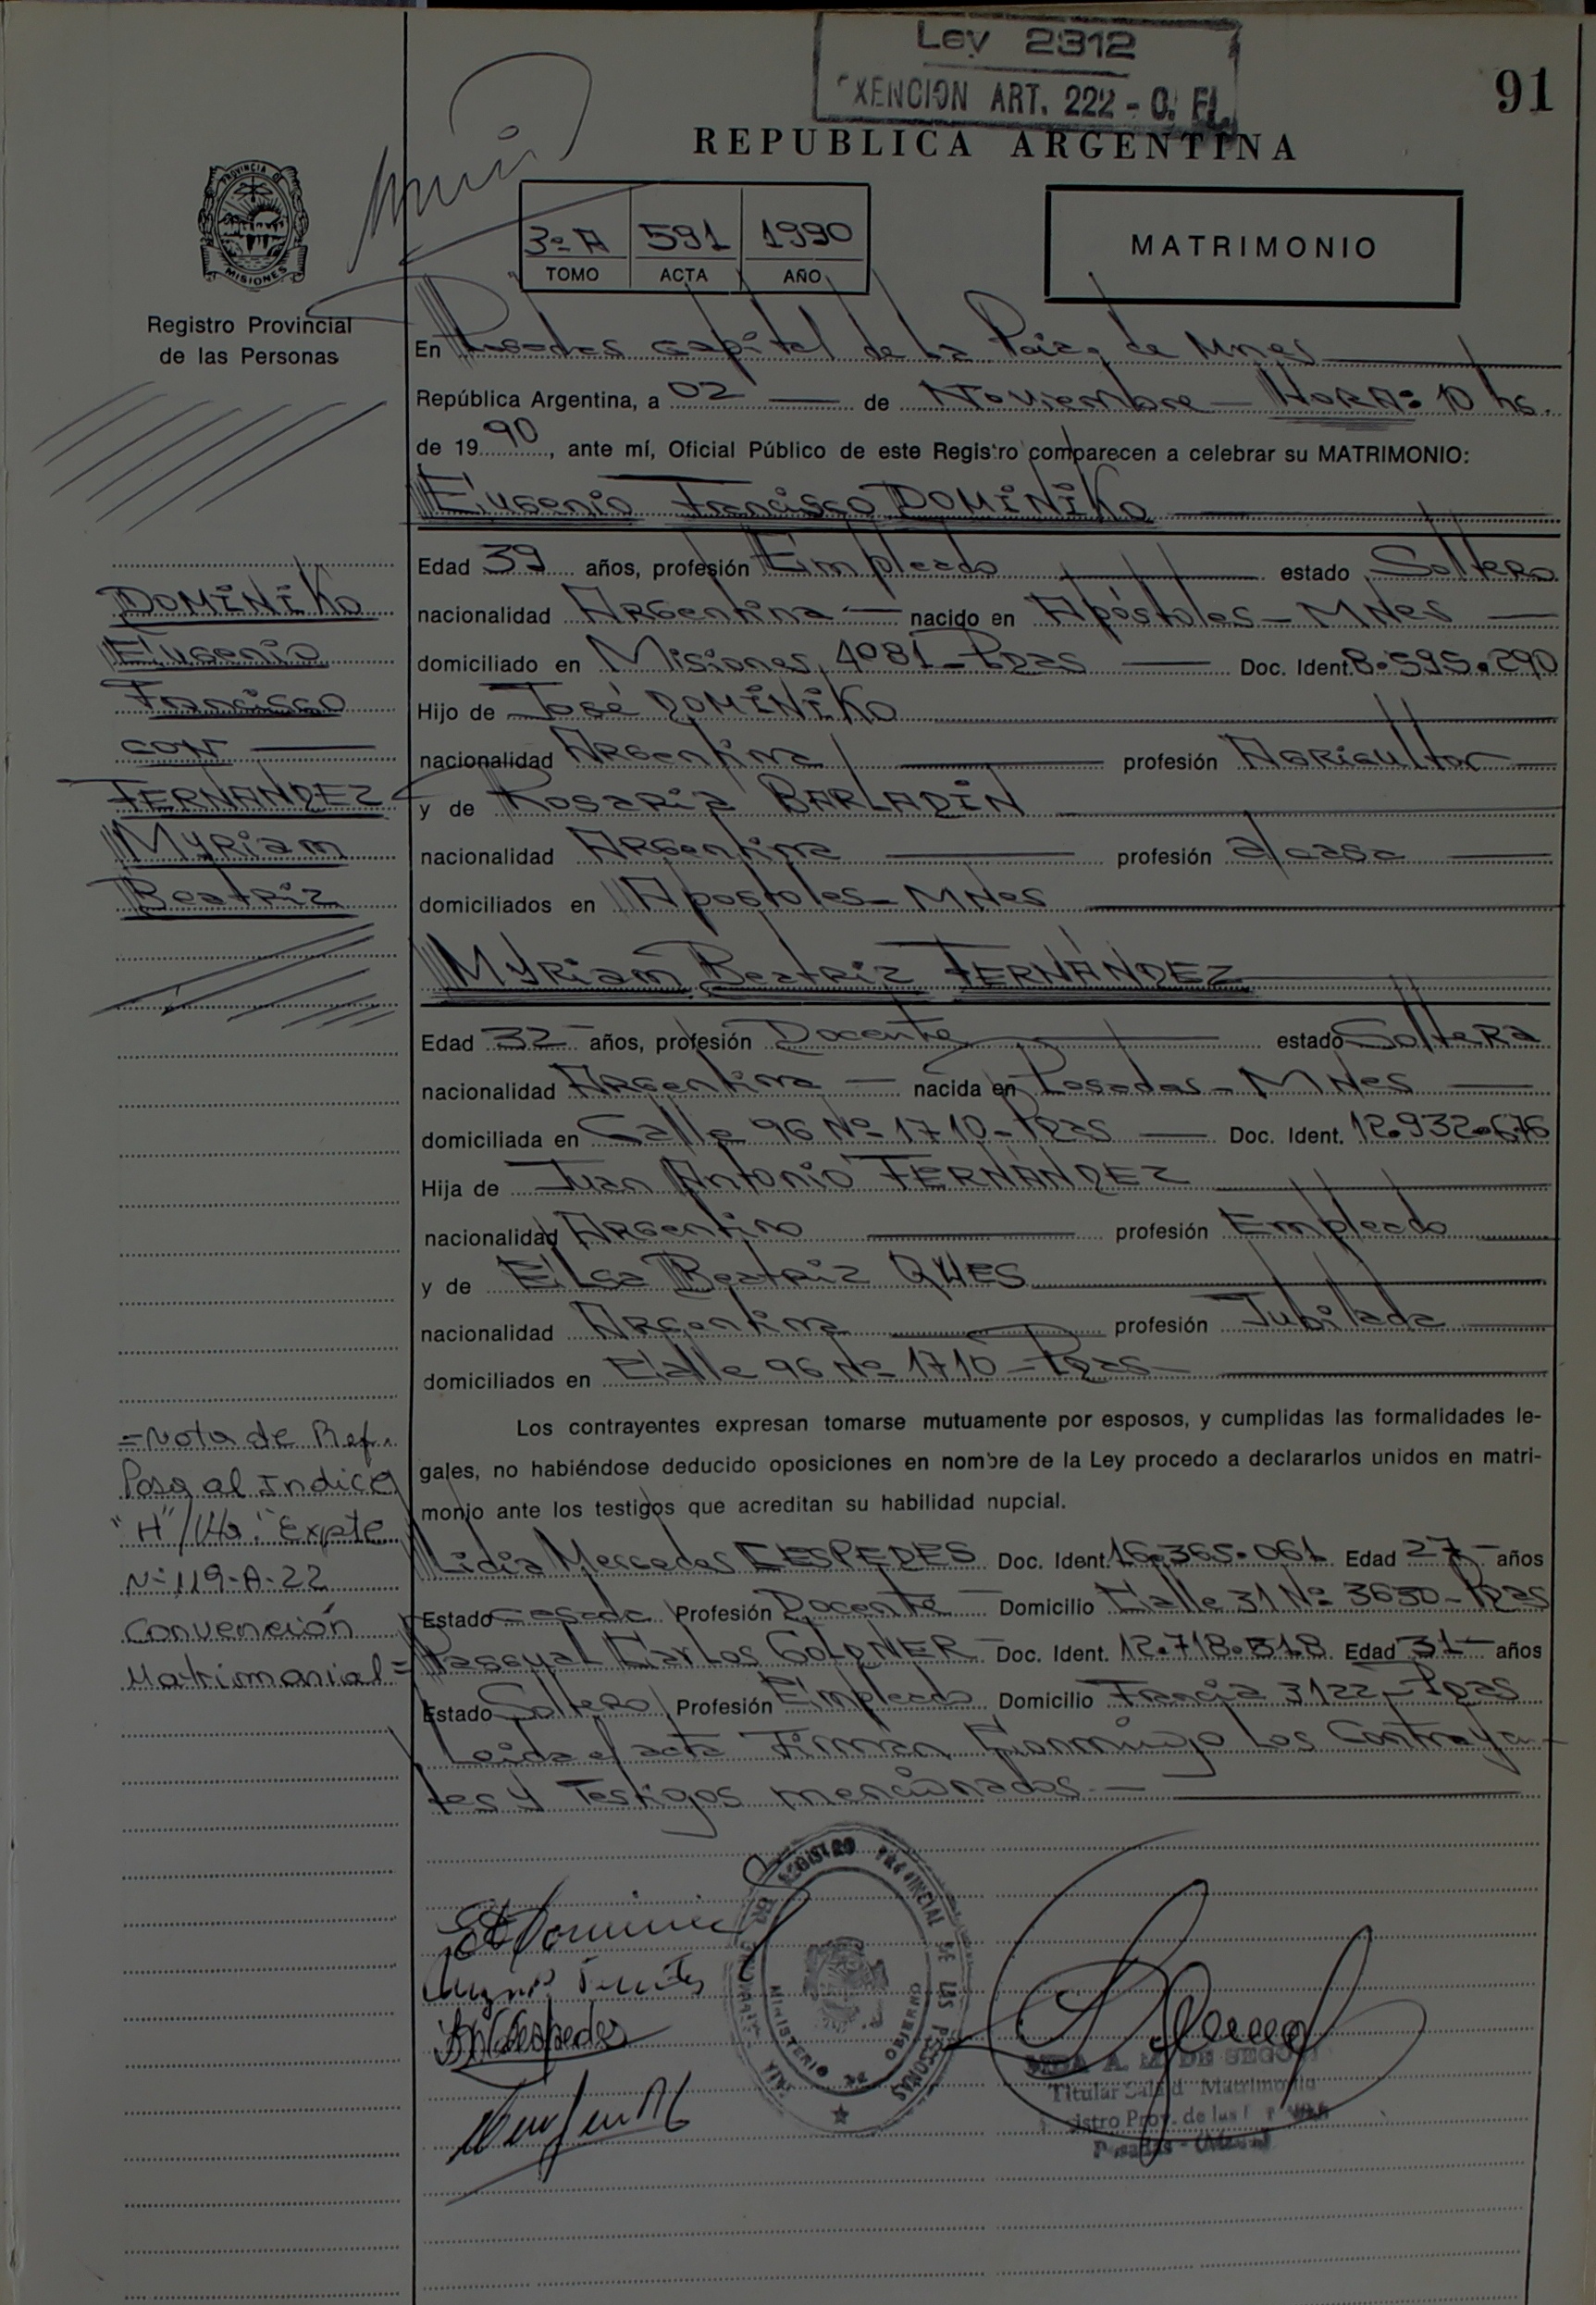 Ley 2312
EXENCION ART. 222 - C. FI.
91
REPUBLICA ARGENTINA
PROVINCIA DE
MISIONES
Registro Provincial
de las Personas
3º A 591 1990
TOMO ACTA AÑO
MATRIMONIO
En Posadas capital de la Pcia, de Mnes
República Argentina, a 02 de Noviembre - HORA: 10 hs.
de 1990, ante mí, Oficial Público de este Registro comparecen a celebrar su MATRIMONIO:
Eugenio Francisco DOMINIKO
Edad 39 años, profesión Empleado estado Soltero
nacionalidad Argentina nacido en Apóstoles - MNes
domiciliado en Misiones 4081 - Pdas Doc. Ident. 8.595.290
Hijo de José DOMINIKO
nacionalidad Argentina profesión Agricultor
y de Rosaria BARLADIN
nacionalidad Argentina profesión a/casa
domiciliados en Apostoles - MNes
DOMINIKO
Eugenio
Francisco
CON
FERNANDEZ
Myriam
Beatriz
Myriam Beatriz FERNANDEZ
Edad 32 años, profesión Docente estado Soltera
nacionalidad Argentina nacida en Posadas - MNes
domiciliada en Calle 96 Nº 1710 - Pdas Doc. Ident. 12.932.676
Hija de Juan Antonio FERNANDEZ
nacionalidad Argentino profesión Empleado
y de Elsa Beatriz
nacionalidad Argentina profesión Jubilada
domiciliados en Calle 96 Nº 1710 - Pdas
Los contrayentes expresan tomarse mutuamente por esposos, y cumplidas las formalidades le-
gales, no habiéndose deducido oposiciones en nombre de la Ley procedo a declararlos unidos en matri-
monio ante los testigos que acreditan su habilidad nupcial.
Lidia Mercedes CESPEDES Doc. Ident. 16.365.061 Edad 27 años
Estado casada Profesión Docente Domicilio Calle 31 Nº 3630 - Pdas
Pascual Carlos Doc. Ident. 12.718.318 Edad 31 años
Estado Soltero Profesión Empleado Domicilio Francia 3122 - Pdas
Leida el acta Firman Conmigo los Contrayen-
tes y Testigos mencionados
=Nota de Ref.
Pasa al Indice
"H" Expte
Nº 119-A-22
Convención
Matrimonial=
REGISTRO PROVINCIAL DE LAS PERSONAS
MINISTERIO DE GOBIERNO
A. M. DE SEGOVI
Titular Sala d Matrimonio
Registro Prov. de las
Posadas - (Mnes)